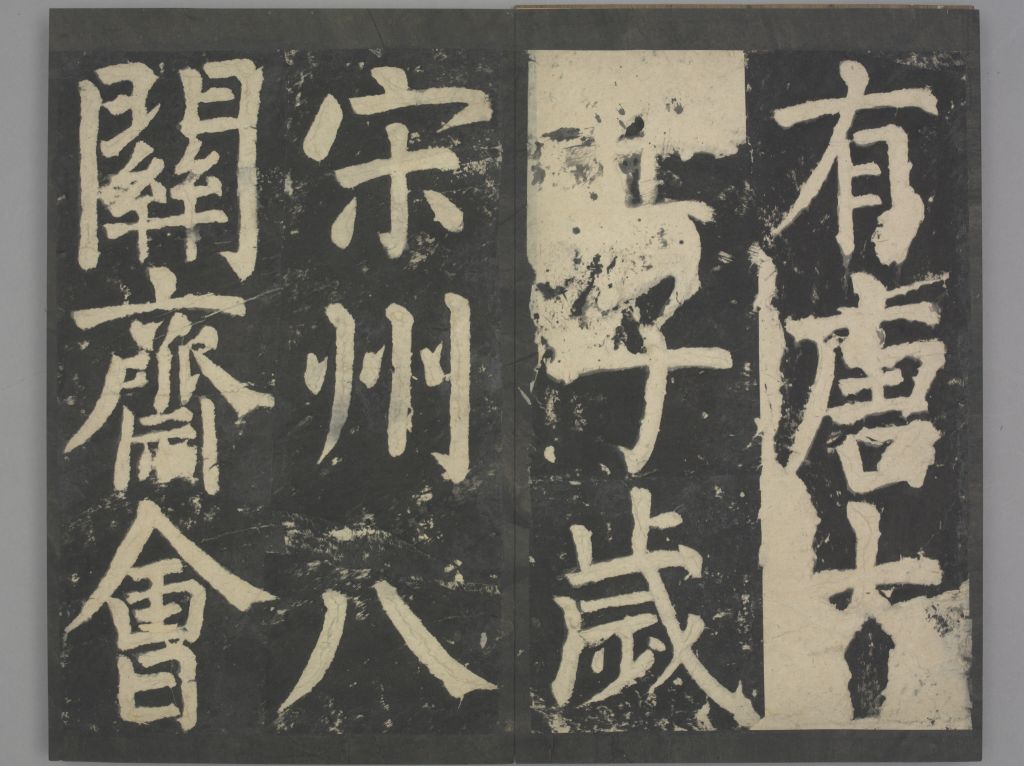 有唐大
壬子歲
宋州八
關齋會